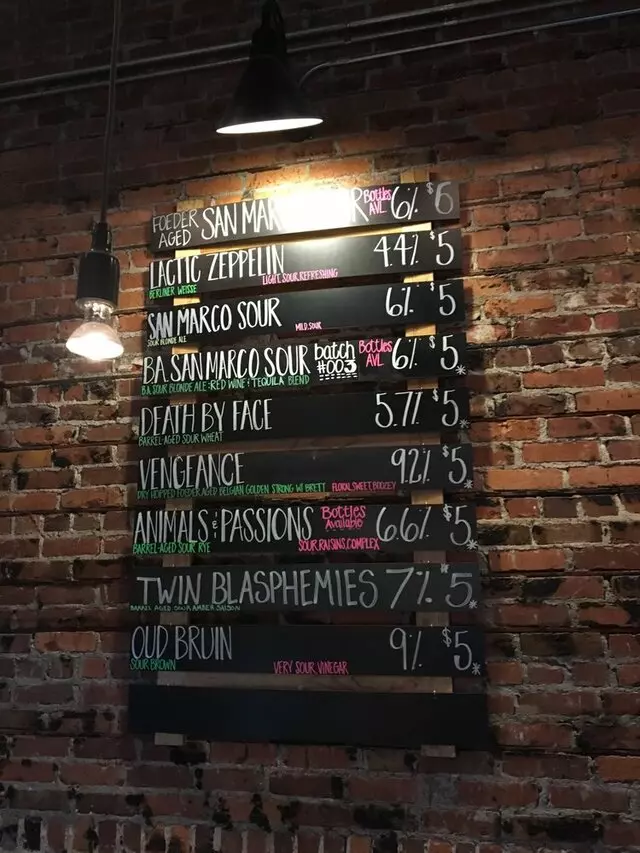 FOEDER AGED SAN MAR R Bottles AVL. 6% $6
LACTIC ZEPPELIN 4.4% $5
BERLINER WEISSE LIGHT.SOUR.REFRESHING
SAN MARCO SOUR 6% $5
SOUR BLONDE ALE MILD.SOUR
B.A. SAN MARCO SOUR batch #003 Bottles AVL 6% $5*
B.A. SOUR BLONDE ALE: RED WINE & TEQUILA BLEND
DEATH BY FACE 5.7% $5*
BARREL-AGED SOUR WHEAT
VENGEANCE 9.2% $5*
DRY HOPPED FOEDER AGED BELGIAN GOLDEN STRONG W/ BRETT FLORAL.SWEET.BOOZEY
ANIMALS & PASSIONS Bottles Available 6.6% $5*
BARREL-AGED SOUR RYE SOUR.RAISINS.COMPLEX
TWIN BLASPHEMIES 7% $5*
BARREL AGED SOUR AMBER SAISON
OUD BRUIN 9% $5*
SOUR BROWN VERY SOUR VINEGAR